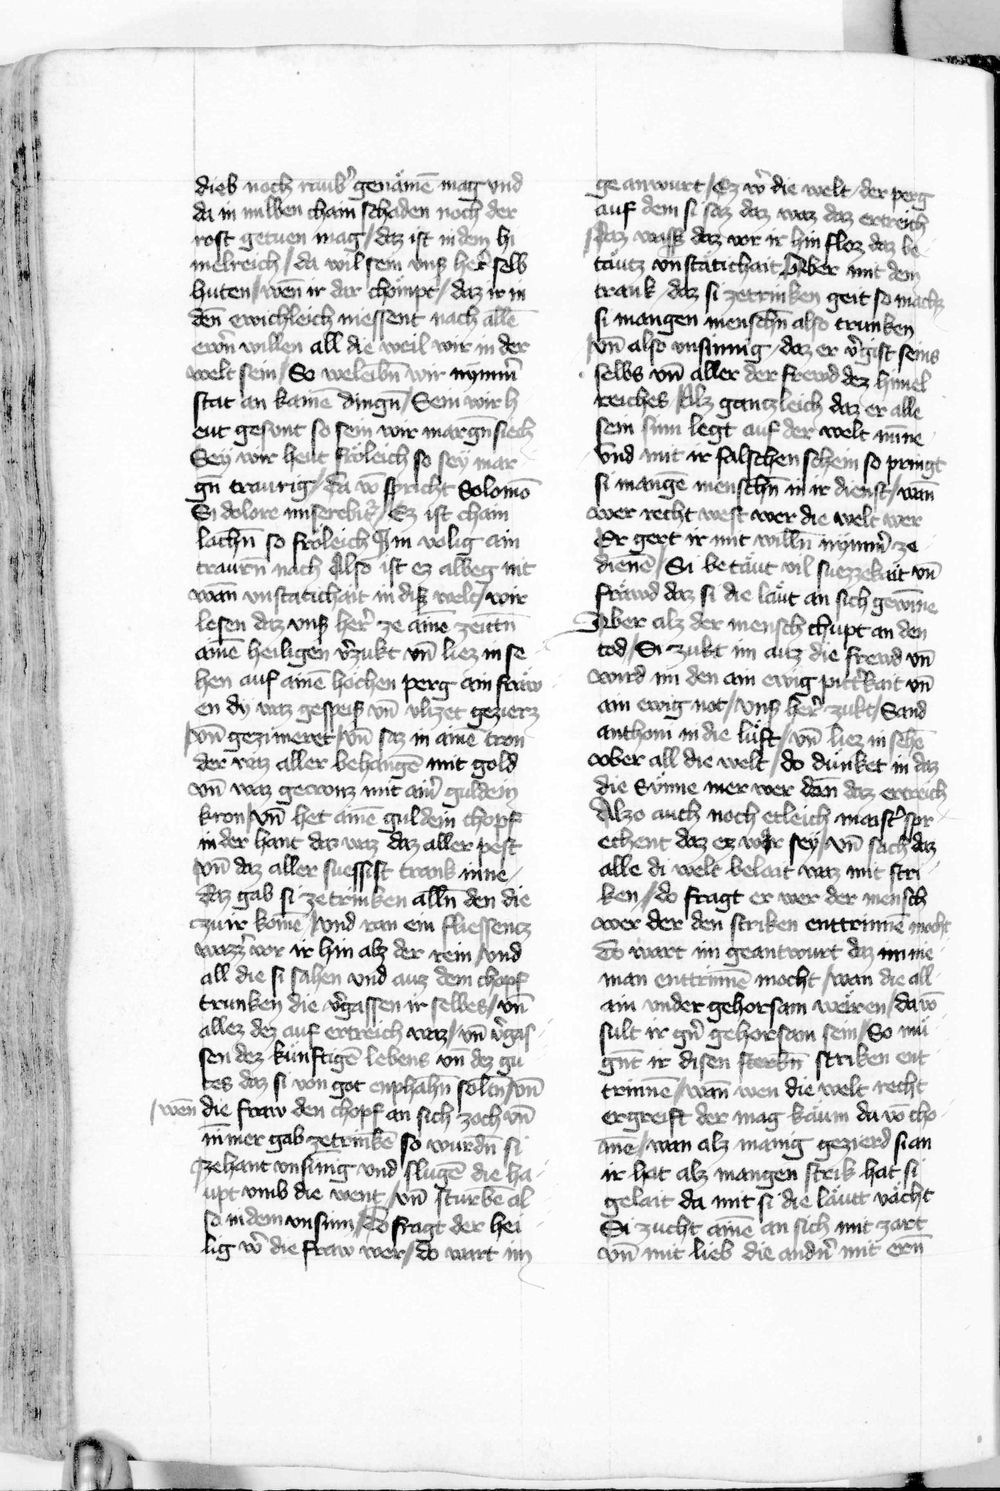 dieb noch raub' genämē mag vnd
da in milben chain schaden noch der
rost getuen mag / daz ist in dem hi
melreich / da wil sein vnß her' selb
huten / wen̄ ir dar chömpt / daz ir in
den̄ ewichleich niessent nach allē
ewrn willen all die weil wir in der
welt sein / So weleibn̄ wir nymm'
stät an kainē dingn̄ / Sein wir h
eut gesunt so sein wir margn̄ siech
Sey wir heut fröleich so sey mar
gn̄ traurig / da vō spricht Solomō
Si dolore miserebit' / Ez ist chain
lachn̄ so fröleich Im volig ain
traurn̄ nach Also ist ez albeg nit
wan̄ vnstätichait in diß welt / wir
lesen daz vnß her' ze ainē zeitn̄
ainē heiligen v'zukt vn̄ liez in se
hen auf ainē höchen perg ain fraw
en dy waz gespeiß vn̄ vlizet gezierz
vn̄ gezimeret / vn̄ saz in ainē tron
der waz aller behangē mit gold
vn̄ waz gecronz mit ain' guldein
kron / vn̄ het ainē guldein chopf
in der hant daz waz daz aller pest
vn̄ daz aller suessist trank inne
daz gab si ze trinken alln̄ den die
zu ir komē / vnd ran ein fliessentz
wazz' vor ir hin alz der rein / vnd
all die si sahen vnd auz dem chopf
trunken die v'gassen ir selbes / vn̄
allez dez auf ertreich waz / vn̄ v'gas
sen dez künftigē lebens vn dez gu
tes daz si von got enphahn̄ soltn̄ / vn̄
/ wen die fraw den chopf an sich zoch vn̄
in mer gab ze trinkē so wurdn̄ si
zehant vnsinig vnd slugē die ha
upt vmb die went / vn̄ sturbē al
so in dem vnsinn / Do fragt der hei
lig w' die fraw wer / do wart im
geanwurt / Ez w' die welt / der perg
auf dem si saz daz waz daz ertreich
/ daz wass' daz vor ir hin floz daz be
täutz vnstätichait Aber mit dem
trank daz si ze trinken geit so machz
si mangen menschn̄ also trunken
vn̄ also vnsinnig / daz er v'gist seins
selbs vn̄ aller der frewd dez himel
reiches / Alz gantzleich daz er alle
sein sinn legt auf der welt mīne
Vnd mit ir falschen schein so pringt
si mangē menschn̄ in ir dienst / wan̄
wer recht west wer die welt wer
Er gert ir mit willn̄ nymm' ze
dienē / Si betäut vil suezzekait vn̄
fräwd daz si die läut an sich gewīne
Aber alz der mensch chupt an den
tod / Si zukt im auz die frewd vn̄
wird im den ain ewig pitt'kait vn̄
ain ewig not / vnß her' zukt / Sand
anthoni in die lüft / vn̄ liez in sehē
vber all die welt / do dunket in daz
die Sūnne mer wer dan̄ daz ertreich
Alzo auch noch etleich maist' spr
echent daz ez war sey / vn̄ sach daz
alle di welt belait waz mit stri
ken / do fragt er wer der mensch
wer der den striken enttrinnē mocht
Do wart im geantwurt daz im nie
man enttrinnē mocht / wan die all
ain vnder gehorsam weären / da vō
sult ir gn̄ gehorsam sein / So mü
gnt ir disen sterkn̄ striken ent
trinne / wan̄ wen die welt recht
ergreift der mag kaum da vō cho
ame / wan alz manig gezierd si an
ir hat alz mangen strik hat si
gelait da mit si die läutt vächt
Si zucht ainē an sich mit zart
vn̄ mit lieb die andn̄ mit ern̄